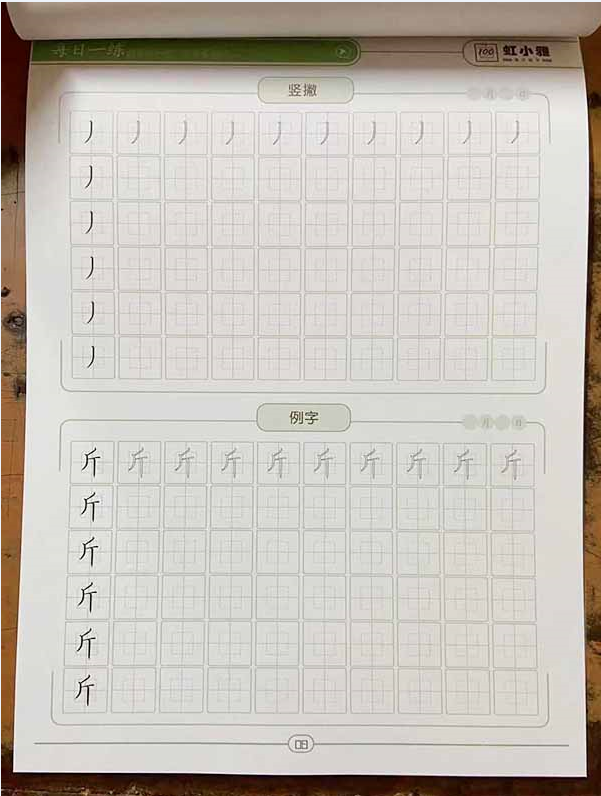 每日一练
100 虹小雅
竖撇
月 日
丿 丿 丿 丿 丿 丿 丿 丿 丿 丿
丿
丿
丿
丿
丿
例字
月 日
斤 斤 斤 斤 斤 斤 斤 斤 斤 斤
斤
斤
斤
斤
斤